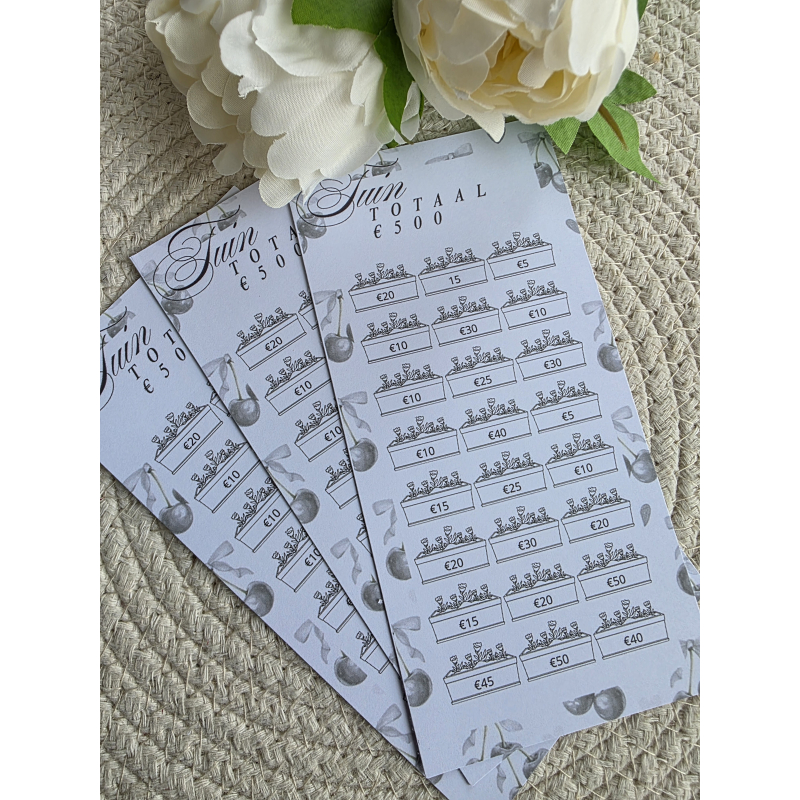 Tuin
TOTAAL
€500
€20 15 €5
€10 €30 €10
€10 €25 €30
€10 €40 €5
€15 €25 €10
€20 €30 €20
€15 €20 €50
€45 €50 €40
Tuin
TOTA
€500
€20
€10
€10
Tuin
TOT
€50
€20
€10
€10
€10